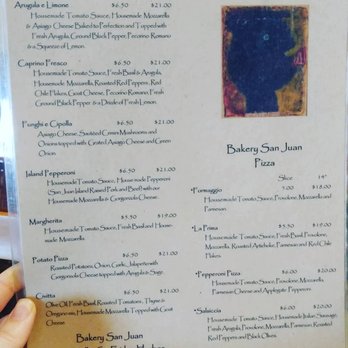 Arugula e Limone $6.50 $21.00
Housemade Tomato Sauce, Housemade Mozzarella
& Asiago Cheese Baked to Perfection and Topped with
Fresh Arugula, Ground Black Pepper, Pecorino Romano
& a Squeeze of Lemon.
Caprino Fresco $6.50 $21.00
Housemade Tomato Sauce, Fresh Basil & Arugula,
Housemade Mozzarella, Roasted Red Peppers, Red
Chile Flakes, Goat Cheese, Pecorino Romano, Fresh
Ground Black Pepper & a Drizzle of Fresh Lemon.
Funghi e Cipolla $6.50 $21.00
Asiago Cheese, Sautéed Cremini Mushrooms and
Onions topped with Grated Asiago Cheese and Green
Onion.
Island Pepperoni $6.50 $21.00
Housemade Tomato Sauce, Housemade Pepperoni
(San Juan Island Raised Pork and Beef) with our
Housemade Mozzarella & Gorgonzola Cheese.
Margherita $5.50 $19.00
Housemade Tomato Sauce, Fresh Basil and House-
made Mozzarella.
Potato Pizza $6.50 $21.00
Roasted Potatoes, Onion, Garlic, Jalapeño with
Gorgonzola Cheese topped with Arugula & Sage.
$6.50 $21.00
Olive Oil, Fresh Basil, Roasted Tomatoes, Thyme &
Oregano mix, Housemade Mozzarella Topped with Goat
Cheese
Bakery San Juan
Bakery San Juan
Pizza
Slice 14"
*Formaggio 5.00 $18.00
Housemade Tomato Sauce, Provolone, Mozzarella and
Parmesan.
*La Prima $5.50 $19.00
Housemade Tomato Sauce, Fresh Basil, Provolone,
Mozzarella, Roasted Artichoke, Parmesan and Red Chile
Flakes.
*Pepperoni Pizza $6.00 $20.00
Housemade Tomato Sauce, Provolone, Mozzarella,
Parmesan Cheese and Applegate Pepperoni.
*Salsiccia $6.00 $20.00
Housemade Tomato Sauce, Housemade Italian Sausage,
Fresh Arugula, Provolone, Mozzarella, Parmesan, Roasted
Red Peppers and Black Olives.